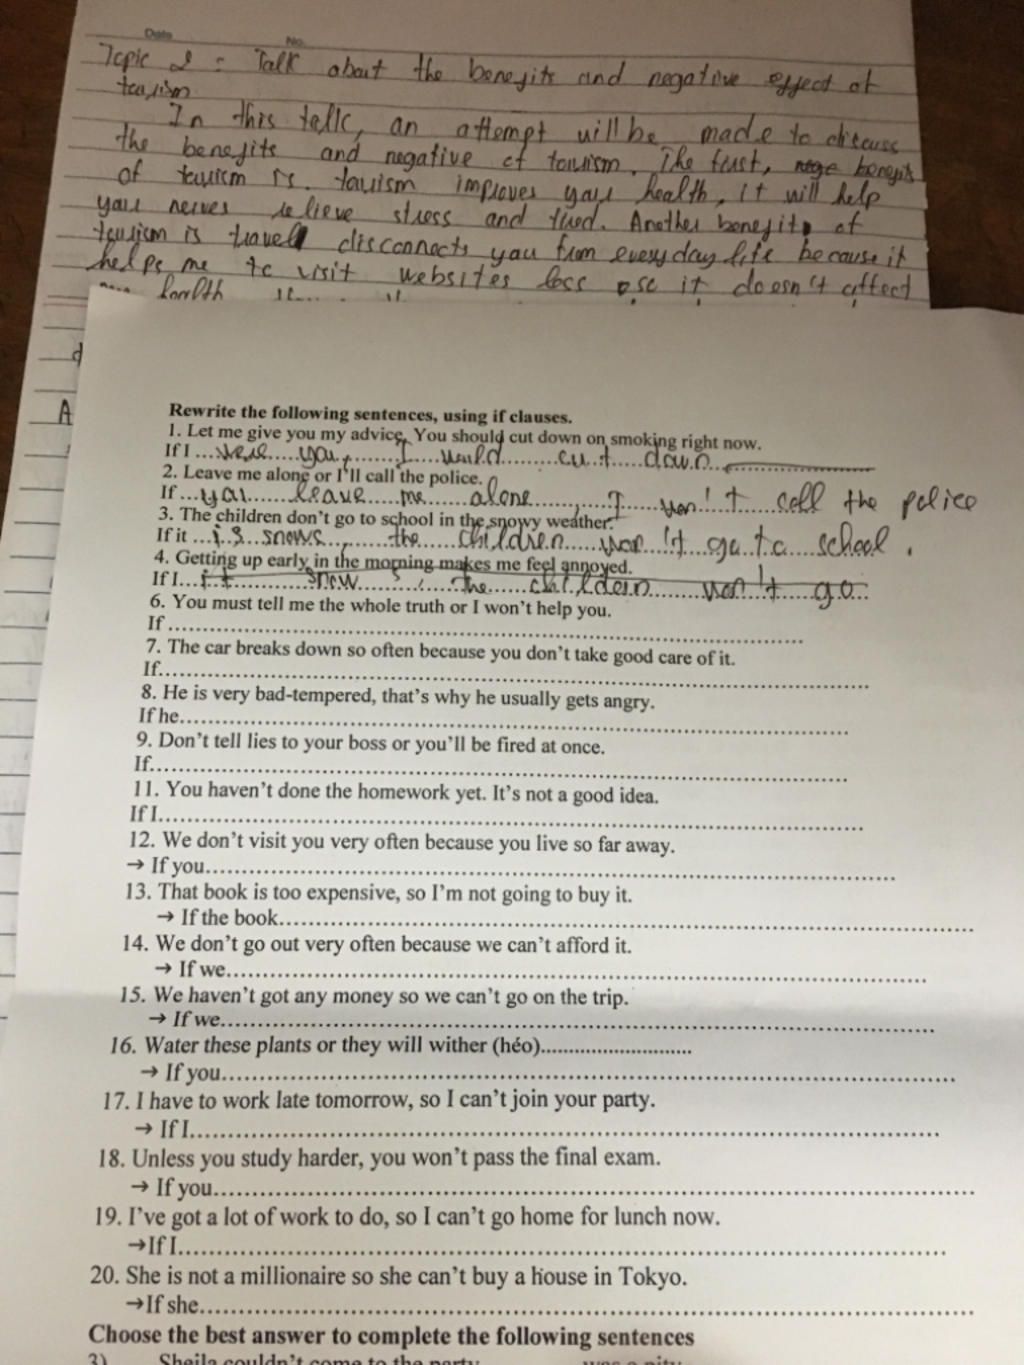 Date No.
Topic 2 : Talk about the benefits and negative effect of
tourism
In this talk, an attempt will be made to discuss
the benefits and negative of tourism. The first, benefits
of tourism is. tourism improves your health, it will help
your nerves relieve stress and tired. Another benefit of
tourism is travel disconnects you from everyday life because it
helps me to visit websites less it doesn't affect
health
d
A
Rewrite the following sentences, using if clauses.
1. Let me give you my advice. You should cut down on smoking right now.
If I ... were ..... you , ........ I ..... would ........ cut ..... down
2. Leave me alone or I'll call the police.
If ... you ...... leave ..... me ..... alone ........ , .... I ..... won't call the police
3. The children don't go to school in the snowy weather.
If it ... is snows ....... , the ..... children ..... won't go to ..... school .
4. Getting up early in the morning makes me feel annoyed.
If I... it ........ snow ..... , .... the ...... children ........ won't ..... go ...
6. You must tell me the whole truth or I won't help you.
If ................................................
7. The car breaks down so often because you don't take good care of it.
If................................................
8. He is very bad-tempered, that's why he usually gets angry.
If he................................................
9. Don't tell lies to your boss or you'll be fired at once.
If................................................
11. You haven't done the homework yet. It's not a good idea.
If I................................................
12. We don't visit you very often because you live so far away.
→ If you................................................
13. That book is too expensive, so I'm not going to buy it.
→ If the book................................................
14. We don't go out very often because we can't afford it.
→ If we................................................
15. We haven't got any money so we can't go on the trip.
→ If we................................................
16. Water these plants or they will wither (héo)............................
→ If you................................................
17. I have to work late tomorrow, so I can't join your party.
→ If I................................................
18. Unless you study harder, you won't pass the final exam.
→ If you................................................
19. I've got a lot of work to do, so I can't go home for lunch now.
→If I................................................
20. She is not a millionaire so she can't buy a house in Tokyo.
→If she................................................
Choose the best answer to complete the following sentences
3) Sheila couldn't come to the party